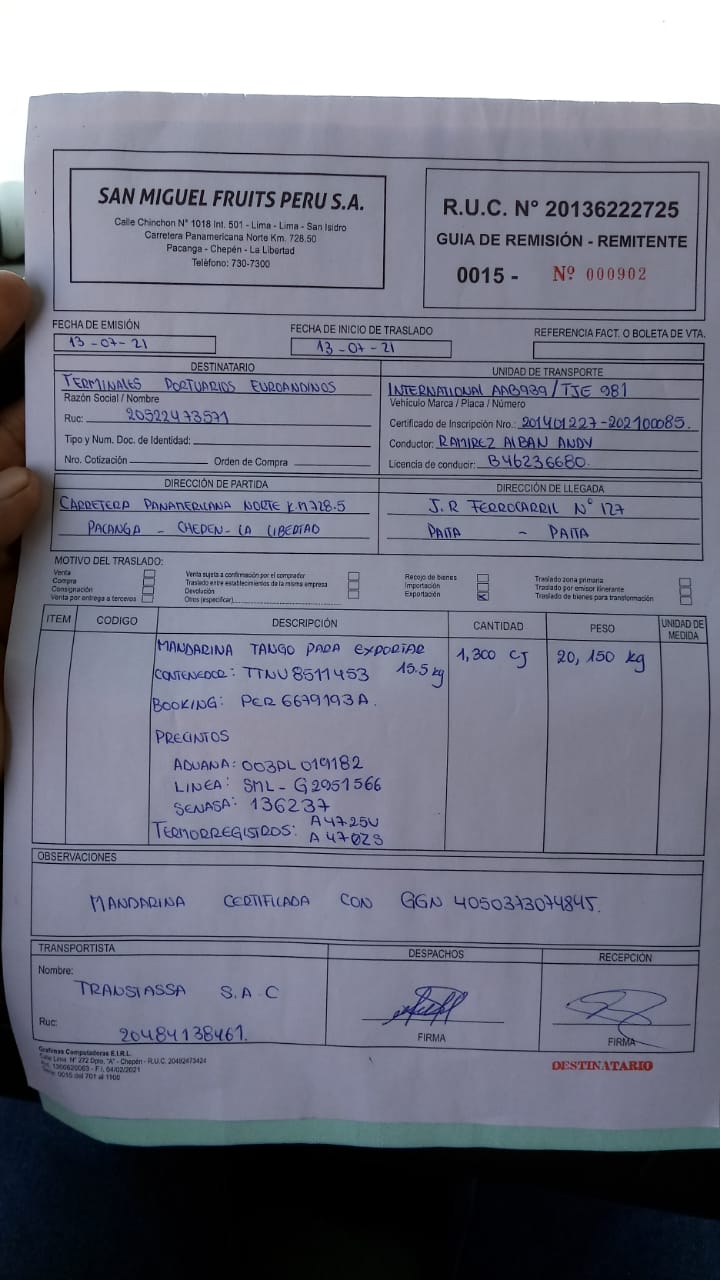 SAN MIGUEL FRUITS PERU S.A.
Calle Chinchon N° 1018 Int. 501 - Lima - Lima - San Isidro
Carretera Panamericana Norte Km. 728.50
Pacanga - Chepén - La Libertad
Teléfono: 730-7300
R.U.C. N° 20136222725
GUIA DE REMISIÓN - REMITENTE
0015 - Nº 000902
FECHA DE EMISIÓN
13-07-21
FECHA DE INICIO DE TRASLADO
13-07-21
REFERENCIA FACT. O BOLETA DE VTA.
DESTINATARIO
TERMINALES PORTUARIOS EUROANDINOS
Razón Social / Nombre
Ruc: 20522473571
Tipo y Num. Doc. de Identidad:
Nro. Cotización Orden de Compra
UNIDAD DE TRANSPORTE
INTERNATIONAL AAB939/TJE 981
Vehículo Marca / Placa / Número
Certificado de Inscripción Nro.: 201401227-202100085.
Conductor: RAMIREZ ALBAN ANDY
Licencia de conducir: B46236680.
DIRECCIÓN DE PARTIDA
CARRETERA PANAMERICANA NORTE KM728.5
PACANGA - CHEPEN - LA LIBERTAD
DIRECCIÓN DE LLEGADA
J.R FERROCARRIL N° 127
PAITA - PAITA
MOTIVO DEL TRASLADO:
Venta
Compra
Consignación
Venta por entrega a terceros
Venta sujeta a confirmación por el comprador
Traslado entre establecimientos de la misma empresa
Devolución
Otros (especificar)
Recojo de bienes
Importación
Exportación X
Traslado zona primaria
Traslado por emisor itinerante
Traslado de bienes para transformación
ITEM CODIGO DESCRIPCIÓN CANTIDAD PESO UNIDAD DE MEDIDA
MANDARINA TANGO PARA EXPORTAR 1,300 CJ 20,150 kg
CONTENEDOR: TTNU8511453 15.5 kg
BOOKING: PER6679193A.
PRECINTOS
ADUANA: 003PL019182
LINEA: SML-G2951566
SENASA: 136237
TERMORREGISTROS: A4725U
A470ZS
OBSERVACIONES
MANDARINA CERTIFICADA CON GGN 4050373074845.
TRANSPORTISTA
Nombre:
TRANSIASSA S.A.C
Ruc:
20484138461.
DESPACHOS
FIRMA
RECEPCIÓN
FIRMA
Graficas Computadoras E.I.R.L.
Calle Lima N° 272 Dpto. "A" - Chepén - R.U.C. 20482473424
F.I. 04/02/2021
0015 del 701 al 1100
DESTINATARIO